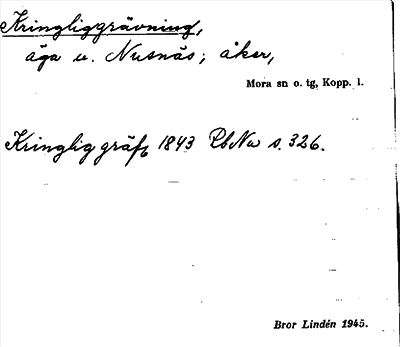 Kringliggrävning,
äga u. Nusnäs; åker,
Mora sn o. tg, Kopp. l.
Kringlig gräfg 1843 LbNu s. 326.
Bror Lindén 1945.